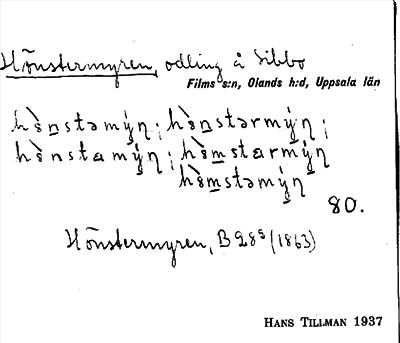 Hönstermyren, odling å Sibbo
Films s:n, Olands h:d, Uppsala län
hə̀nstəmýn; hə̀nstərmýn;
hə̀nstamýn; hə̀mstarmýn
hə̀mstəmýn
80.
Hönstermyren, B 28⁹ (1863)
HANS TILLMAN 1937